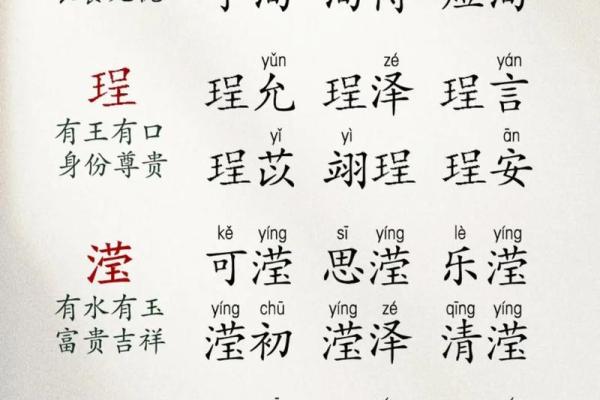 珵
有王有口
身份尊贵
yǔn zé yán
珵允 珵泽 珵言
yǐ yì ān
珵苡 翊珵 珵安
滢
有水有玉
富贵吉祥
kě yíng sī yíng lè yíng
可滢 思滢 乐滢
yíng chū yíng zé qīng yíng
滢初 滢泽 清滢